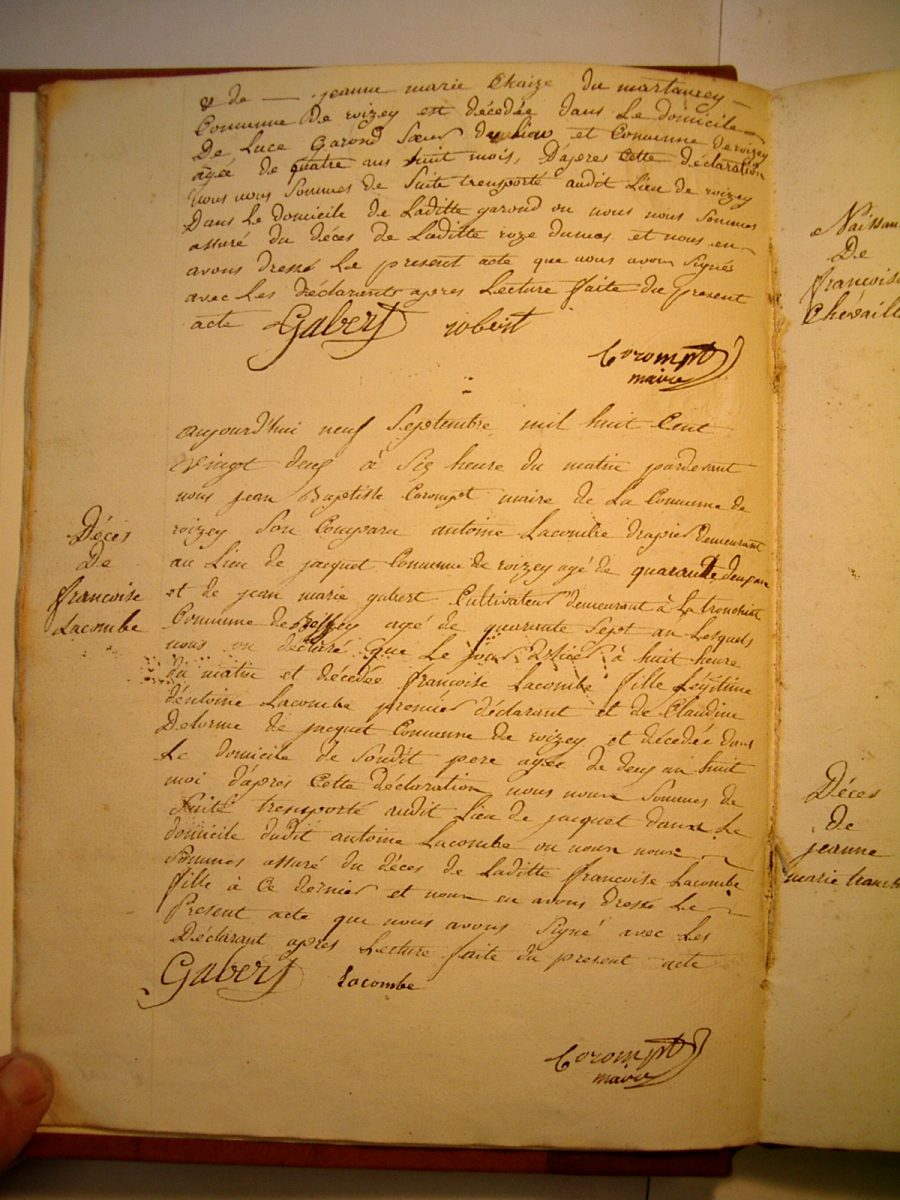 & de — jeanne marie Chaize du martaurey —
Commune De roizey est décédée dans Le domicile
De Luce Garond Sœur du Lieu et Commune De roizey
agée de quatre ans huit mois, D'apres Cette déclaration
nous nous Sommes de Suite trensporté audit Lieu de roizey
Dans Le domicile de Laditte garond ou nous nous Sommes
assuré du déces de Laditte roze dumas et nous en
avons dressé Le present acte que nous avons Signés
avec Les déclarants apres Lecture faite du present
acte Gabert robert
Corompt
maire
Décès
De
françoise
Lacombe
aujourd'hui neuf Septembre mil huit Cent
Vingt deux à Six heure du matin pardevant
nous jean Baptiste Corompt maire de La Commune de
roizey Son Comparu antoine Lacombe drapier demeurant
au Lieu de jacquet Commune de roizey agé de quarante deux ans
et de jean marie gabert Cultivateur demeurant à La
Commune de agé de quarante Sept an Lesquels
nous on déclaré que Le jour D'hier à huit heure
du matin et décédée françoise Lacombe fille Légitime
d'entoine Lacombe premier déclarant et de Claudine
Delorme de jacquet Commune de roizey et décédée dans
Le domicile de Soudit pere agée de deux an huit
moi d'apres Cette déclaration nous nous Sommes de
Suite trensporté audit Lieu de jacquet dans Le
domicile dudit antoine Lacombe ou nous nous
Sommes assuré du déces de Laditte françoise Lacombe
fille à Ce dernier et nous en avons dressé Le
Present acte que nous avons Signé avec Les
Déclarant apres Lecture faite du present acte
Gabert Lacombe
Corompt
maire
Naissan
De
françoise
Chevaill
Déces
de
jeanne
marie